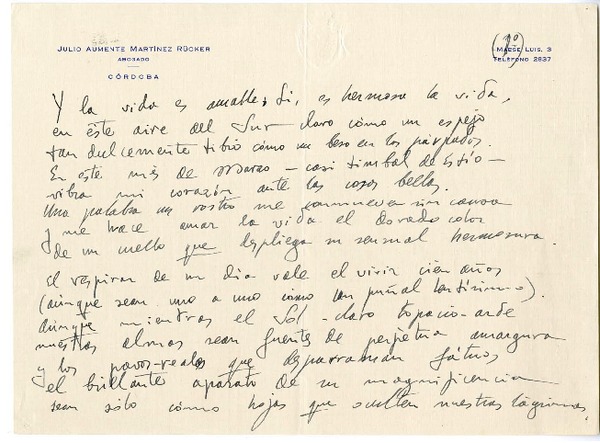 JULIO AUMENTE MARTÍNEZ RÜCKER
ABOGADO
CÓRDOBA
(1º)
MAESE LUIS, 3
TELÉFONO 2837
Y la vida es amable; Sí, es hermosa la vida,
en éste aire del Sur claro cómo un espejo
tan dulcemente tibio cómo un beso en los párpados.
En este mes de Marzo – casi timbal de Estío –
vibra mi corazón ante las cosas bellas.
Una palabra un rostro me conmueven sin causa
y me hace amar la vida el dorado color
de un cuello que despliega su sensual hermosura.
El respirar de un dia vale el vivir cien años
(aúnque sean uno a uno cómo un puñal lentísimo).
aúnque mientras el Sol – claro topacio – arde
nuestras almas sean fuentes de perpetua amargura
y los pavos-reales que desparraman fátuos
el brillante aparato de su magnificencia
sean sólo cómo hojas que oculten nuestras lágrimas.